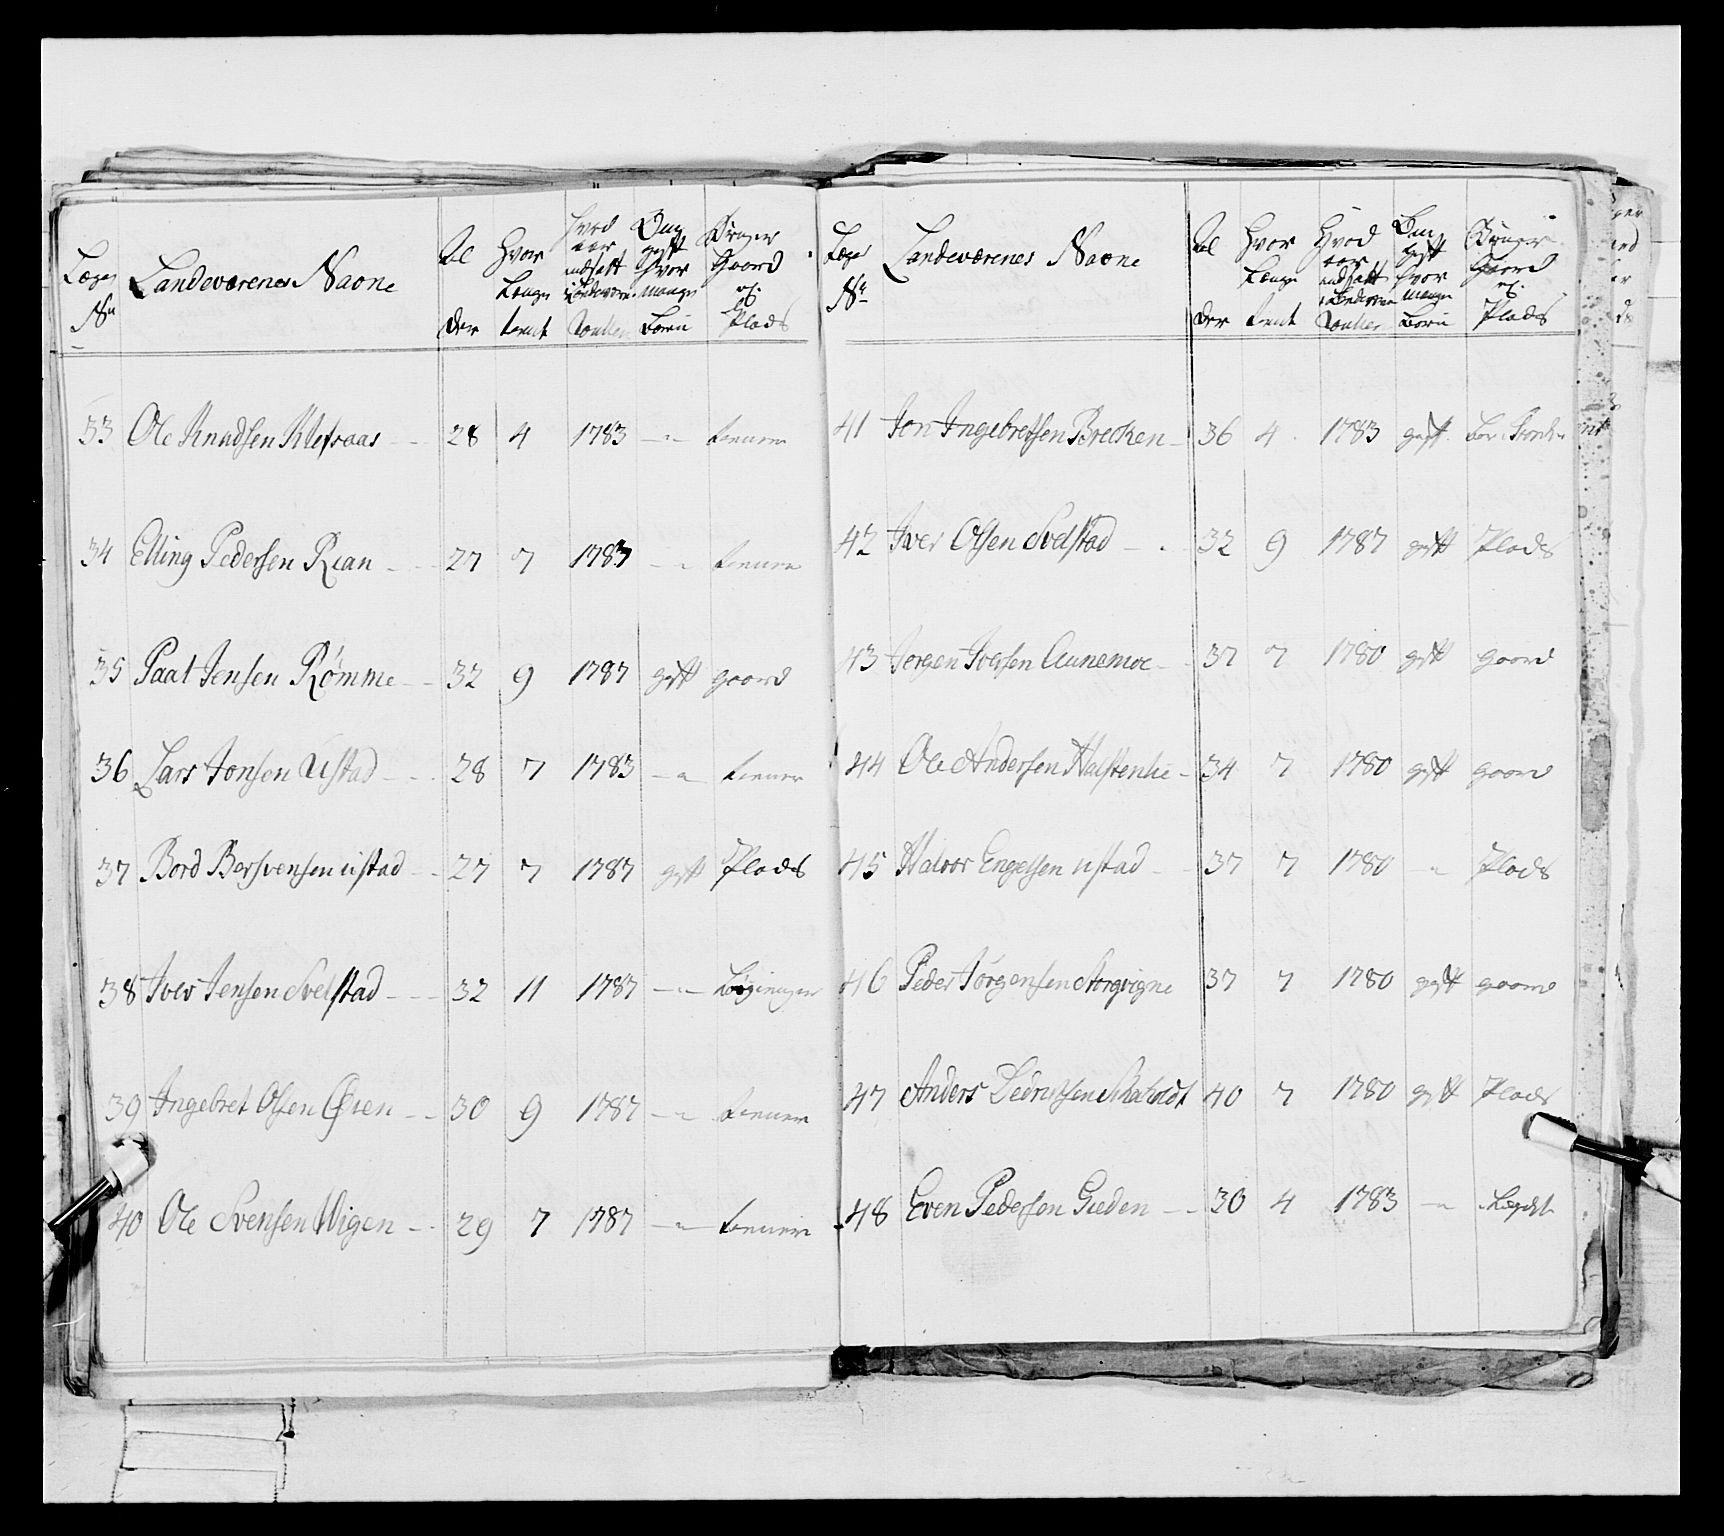 Læges No Landeværenes Navne Al der Hvor Længe tient Hvad aar indsatt i Om gift hvor mange Børn Bruger Gaard og Plads
33 Ole Knudsen Klefsaas 28 4 1783 - " tienner
34 Elling Pedersen Rian 27 7 1783 - " tienner
35 Paal Jensen Rømme 32 9 1787 gift gaard
36 Lars Jonsen Ustad 28 7 1783 - " tienner
37 Bord Bersvensen ustad 27 7 1787 gift Plads
38 Iver Jensen Svelstad 32 11 1787 - "
39 Ingebret Olsen Øien 30 9 1787 - " tienner
40 Ole Svensen Wigen 29 7 1787 - " tienner
Læges No Landeværenes Navne Al der Hvor Længe tient Hvad aar indsatt i Om gift hvor mange Børn Bruger Gaard og Plads
41 Jon Ingebretsen Brecken 36 4 1783 gift
42 Iver Olsen Svelstad 32 9 1787 gift Plads
43 Jørgen Iversen Aunemoe 37 7 1780 gift gaard
44 Ole Andersen Halstenlie 34 7 1780 gift gaard
45 Halvor Engelsen ustad 37 7 1780 - " Plads
46 Peder Jørgensen 37 7 1780 gift gaard
47 Anders 40 7 1780 gift Plads
48 Even Pedersen Gieden 30 4 1783 - "